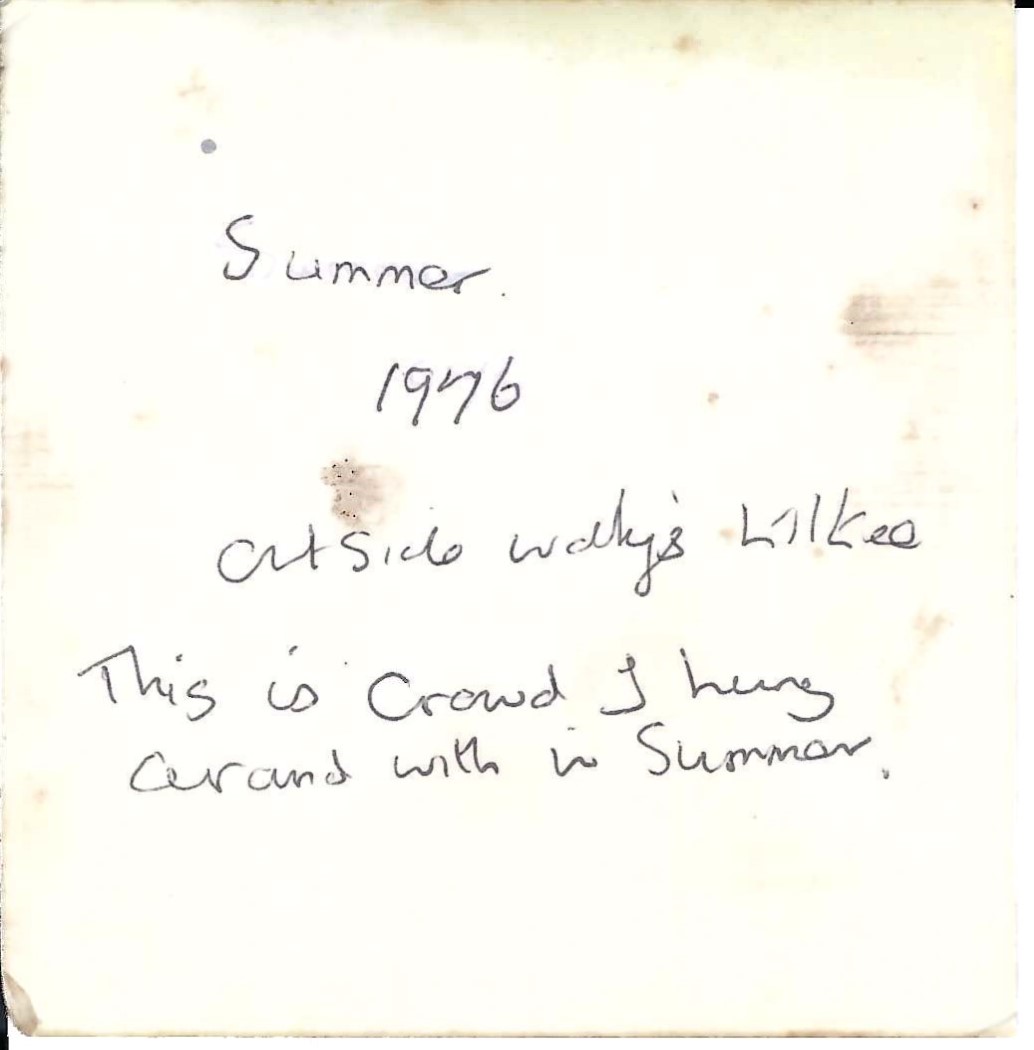 Summer.
1976
outside Wally's Kilkee
This is Crowd I hung
around with in Summer.